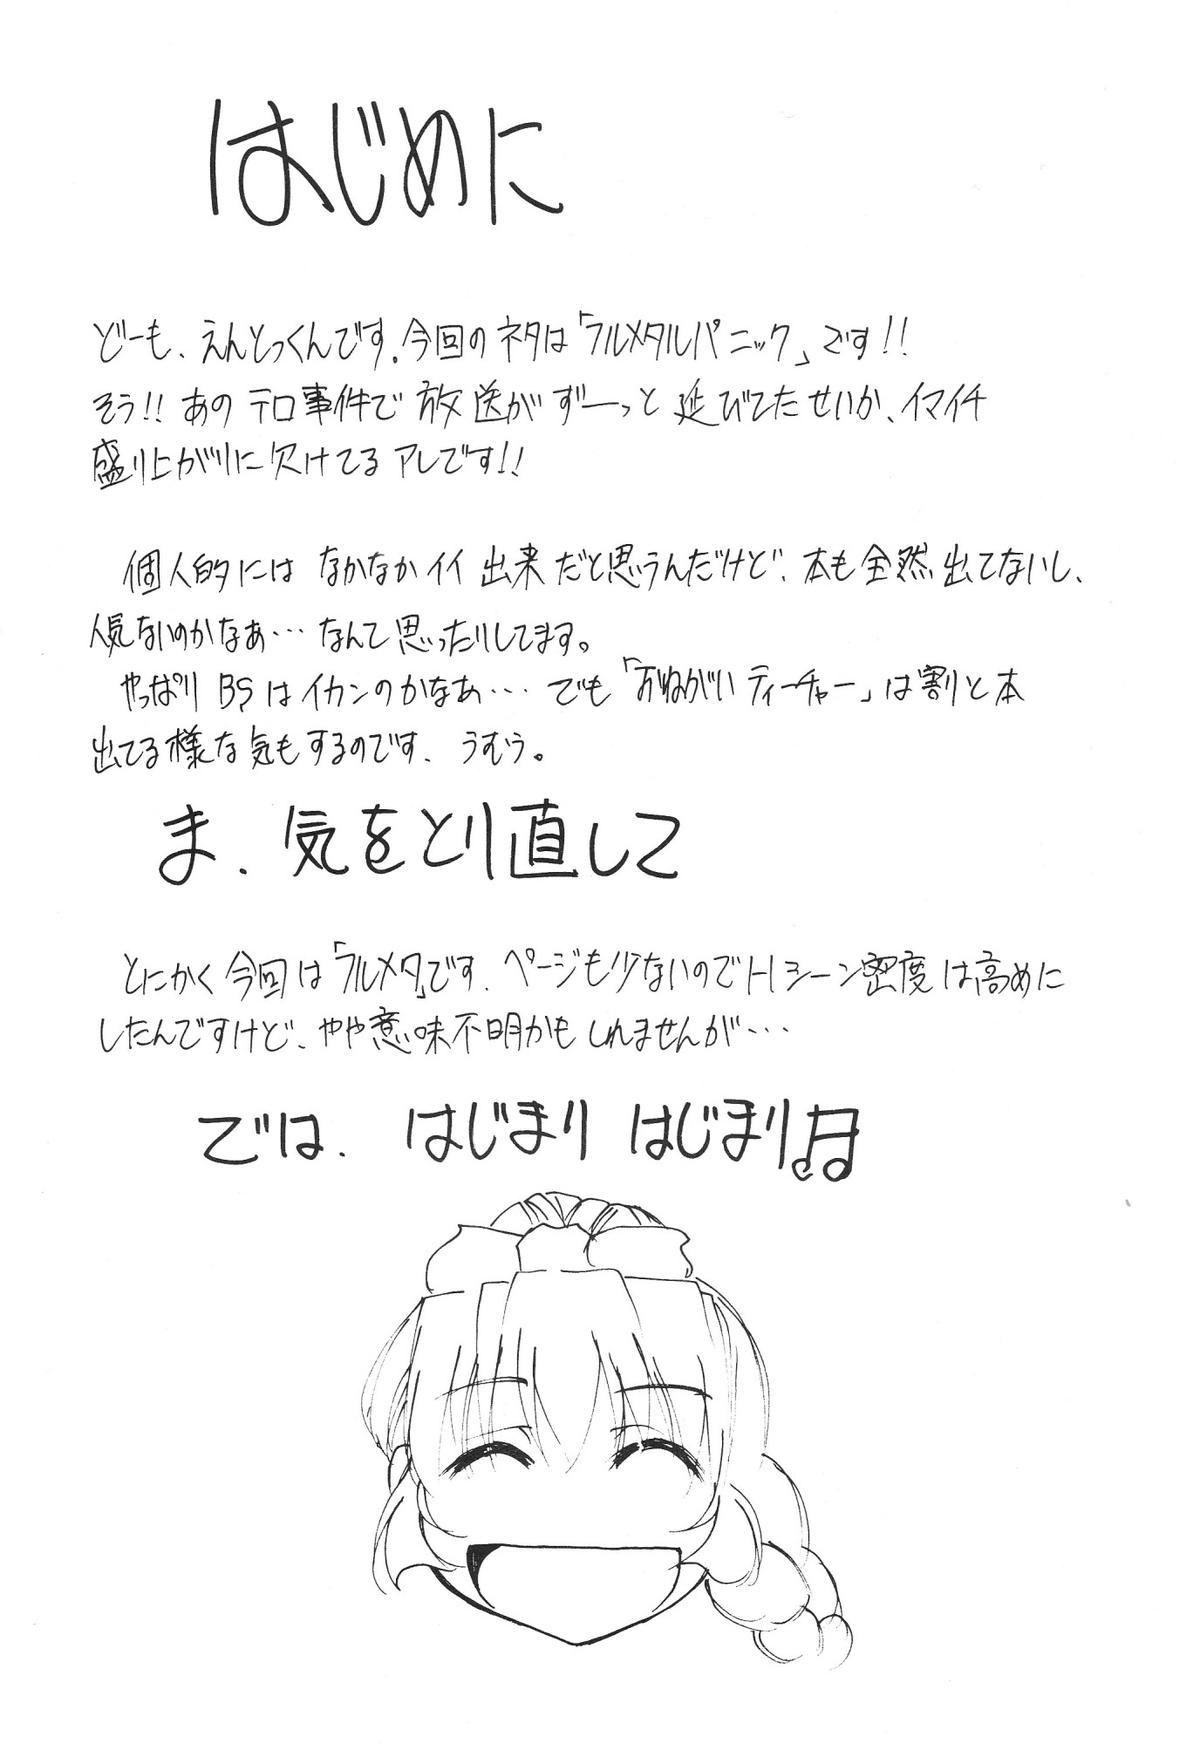 はじめに
どーも、えんとっくんです。今回のネタは「フルメタルパニック」です!!
そう!! あのテロ事件で放送がずーっと延びてたせいか、イマイチ
盛り上がりに欠けてるアレです!!
個人的にはなかなかイイ出来だと思うんだけど、本も全然出てないし、
人気ないのかなぁ…なんて思ったりしてます。
やっぱりBSはイカンのかなあ…でも「おねがいティーチャー」は割と本
出てる様な気もするのです、うむう。
ま、気をとり直して
とにかく今回は「フルメタ」です。ページも少ないのでHシーン密度は高めに
したんですけど、やや意味不明かもしれませんが…
では、はじまりはじまり♫